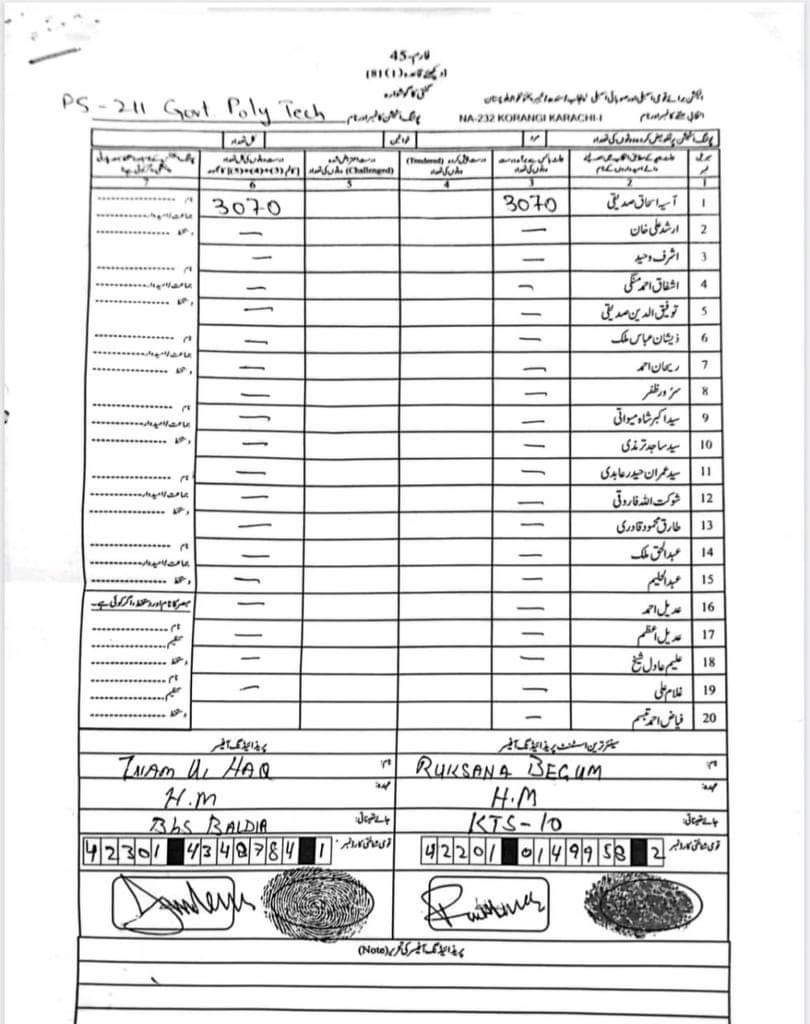 فارم-45
[دیکھئے قاعدہ (1)81]
گنتی کا گوشوارہ
PS-211 Govt Poly Tech
NA-232 KORANGI KARACHI-I
خواتین مرد
1 2 3 4 5 6 7
(Tendered)
(Challenged)
1 آسیہ اسحاق صدیقی 3070 3070
2 ارشد علی خان — —
3 اشرف وحید — —
4 اشفاق احمد منگی — —
5 توفیق الدین صدیقی — —
6 ذیشان عباس ملک — —
7 ریحان احمد — —
8 سرور ظفر — —
9 سید اکبر شاہ میواتی — —
10 سید ساجد ترمذی — —
11 سید عمران حیدر عابدی — —
12 شوکت اللہ فاروقی — —
13 طارق محمود قادری — —
14 عبدالحق ملک — —
15 عبدالحلیم — —
16 عدیل احمد — —
17 عدیل اعظم — —
18 علیم عادل شیخ — —
19 غلام علی — —
20 فیاض احمد تبسم —
سینئر ترین اسسٹنٹ پریذائیڈنگ آفیسر
نام: RUKSANA BEGUM
عہدہ: H.M
جائے تعیناتی: KTS-10
قومی شناختی کارڈ نمبر 42201 0149958 2
پریذائیڈنگ آفیسر
نام: INAM UL HAQ
عہدہ: H.M
جائے تعیناتی: BHS BALDIA
قومی شناختی کارڈ نمبر 42301 4348784 1
پریذائیڈنگ آفیسر کی تحریر (Note)